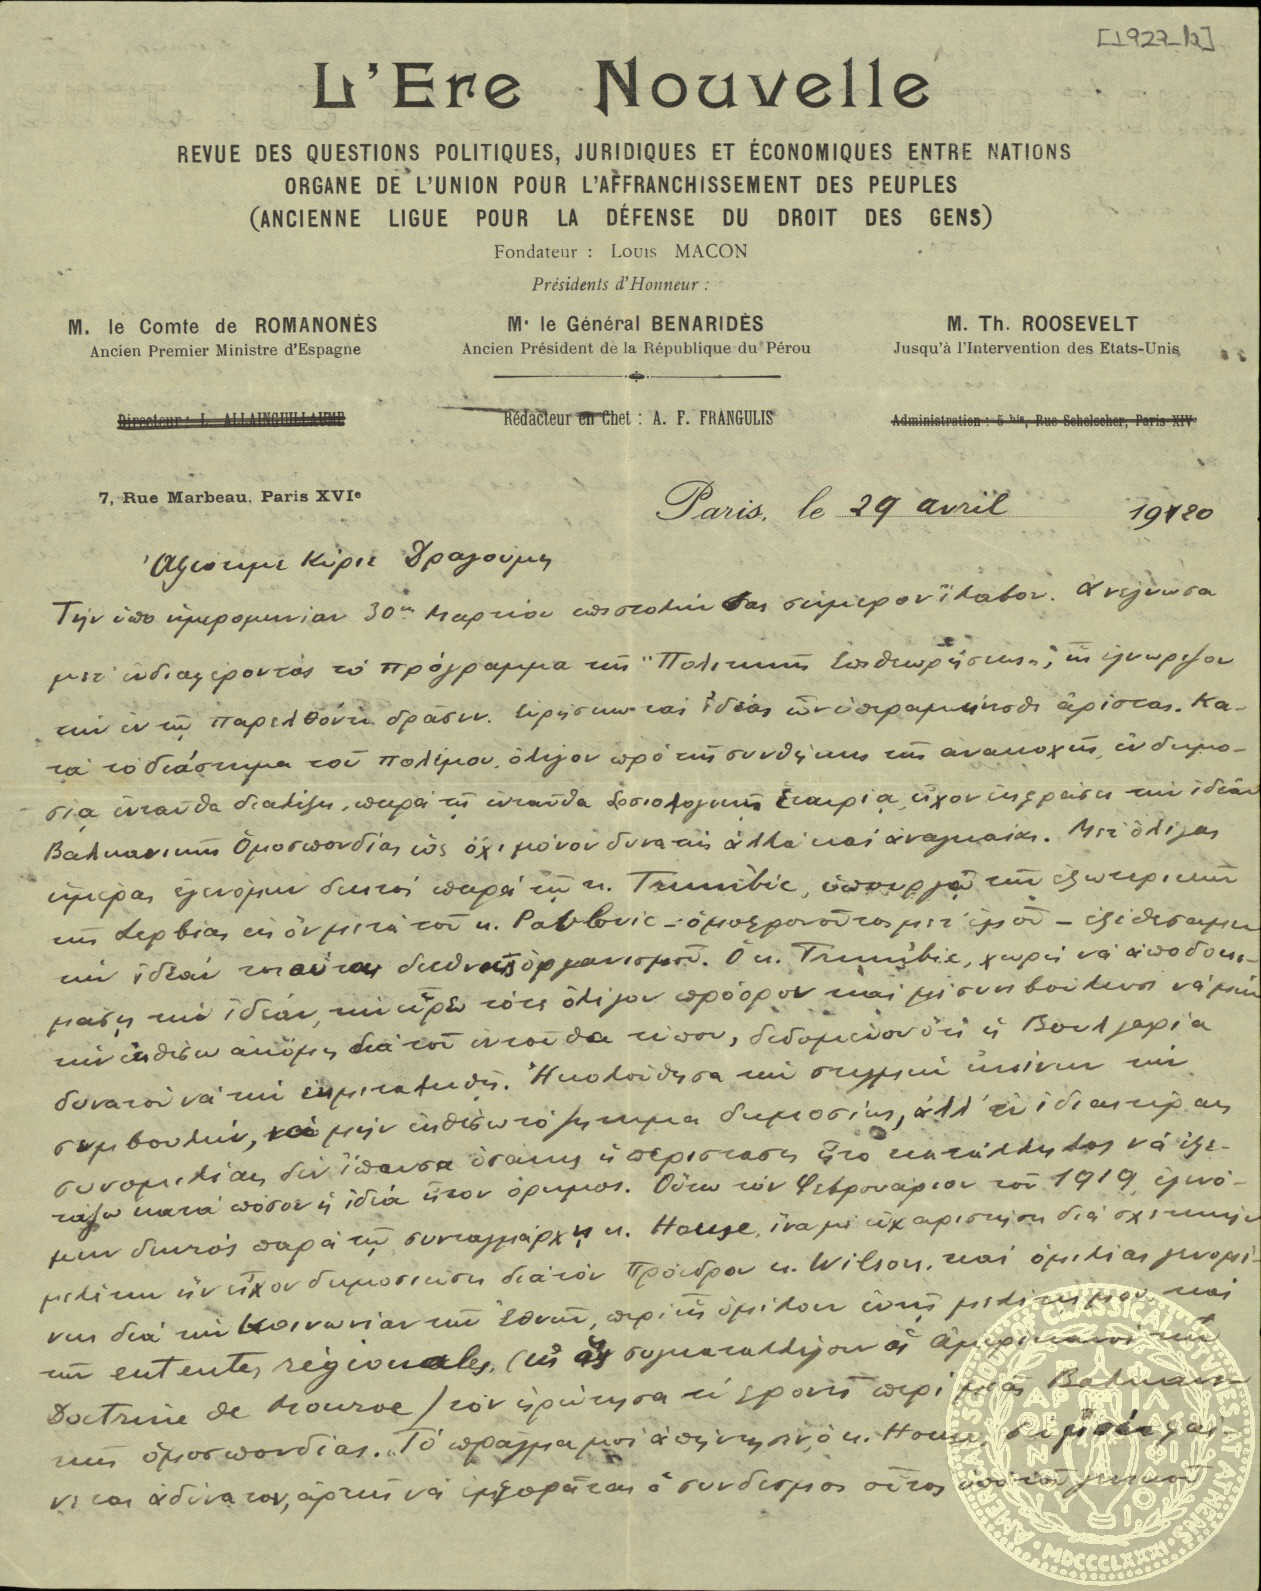 [1922_b]
L'Ere Nouvelle
REVUE DES QUESTIONS POLITIQUES, JURIDIQUES ET ÉCONOMIQUES ENTRE NATIONS
ORGANE DE L'UNION POUR L'AFFRANCHISSEMENT DES PEUPLES
(ANCIENNE LIGUE POUR LA DÉFENSE DU DROIT DES GENS)
Fondateur : Louis MACON
Présidents d'Honneur :
M. le Comte de ROMANONÈS
Ancien Premier Ministre d'Espagne
Mr le Général BENARIDÈS
Ancien Président de la République du Pérou
M. Th. ROOSEVELT
Jusqu'à l'Intervention des Etats-Unis
Directeur : L. ALLAINGUILLAUME
Rédacteur en Chef : A. F. FRANGULIS
Administration : 5 bis, Rue Schelscher, Paris XIVe
7, Rue Marbeau, Paris XVIe
Paris, le 29 avril 1920
Ἀξιότιμε Κύριε Δραγούμη
Τὴν ὑπὸ ἡμερομηνίαν 30ην Μαρτίου ἐπιστολήν σας σήμερον ἔλαβον. Ἀνέγνωσα
μετ' ἐνδιαφέροντος τὸ πρόγραμμα τῆς "Πολιτικῆς Ἐπιθεωρήσεως", ἧς ἐγνώριζον
τὴν ἐν τῷ παρελθόντι δρᾶσιν. Εὑρίσκω τὰς ἰδέας ὧν ὑπεραμύνεσθε ἀρίστας. Κα-
τὰ τὸ διάστημα τοῦ πολέμου, ὀλίγον πρὸ τῆς συνθήκης τῆς ἀνακωχῆς, ἐν δημο-
σίᾳ ἐνταῦθα διαλέξει, παρὰ τῇ ἐνταῦθα Κοσιολογικῇ Ἑταιρίᾳ, εἶχον ἐκφράσει τὴν ἰδέαν
Βαλκανικῆς Ὁμοσπονδίας ὡς ὄχι μόνον δυνατῆς ἀλλὰ καὶ ἀναγκαίας. Μετ' ὀλίγας
ἡμέρας ἐγενόμην δεκτὸς παρὰ τῷ κ. Trumbic, ὑπουργῷ τῶν ἐξωτερικῶν
τῆς Σερβίας εἰς ὃν μετὰ τοῦ κ. Pavlovic - ὁμοφρονοῦντος μετ' ἐμοῦ - ἐξέθεσα
τὴν ἰδέαν τοιαύτης διεθνοῦς ὀργανισμοῦ. Ὁ κ. Trumbic, χωρὶς νὰ ἀποδοκι-
μάσῃ τὴν ἰδέαν, τὴν εὗρε τότε ὀλίγον πρόωρον καὶ μὲ συνεβούλευσε νὰ μὴν
τὴν ἐκθέσω ἀκόμη διὰ τοῦ ἐνταῦθα τύπου, δεδομένου ὅτι ἡ Βουλγαρία
δυνατὸν νὰ τὴν ἐκμεταλευθῇ. Ἠκολούθησα τὴν στιγμὴν ἐκείνην τὴν
συμβουλήν, νὰ μὴν ἐκθέσω τὸ ζήτημα δημοσίως, ἀλλ' ἐν ἰδιαιτέραις
συνομιλίαις δὲν ἔπαυσα ὁσάκις ἡ περίστασις ἦτο κατάλληλος νὰ ἐξε-
τάζω κατὰ πόσον ἡ ἰδέα ἦτον ὥριμος. Οὕτω τὸν Φεβρουάριον τοῦ 1919, ἐγενό-
μην δεκτὸς παρὰ τῷ συνταγματάρχῃ κ. House, ἵνα μὲ εὐχαριστήσῃ διὰ σχετικὴν
μελέτην ἣν εἶχον δημοσιεύσει διὰ τὸν Πρόεδρον κ. Wilson, καὶ ὁμιλίας γενομέ-
νης διὰ τὴν Κοινωνίαν τῶν Ἐθνῶν, περὶ ἧς ὡμίλουν ἐν τῇ μελέτῃ μου, καὶ
τῶν ententes régionales, (εἰς ἃς συγκαταλέγουν οἱ Ἀμερικανοὶ τὴν
Doctrine de Monroe) τὸν ἠρώτησα τί φρονεῖ περὶ μιᾶς Βαλκανι-
κῆς ὁμοσπονδίας. "Τὸ πρᾶγμα μοὶ ἀπήντησεν ὁ κ. House, δὲν μοὶ φαί-
νεται ἀδύνατον, ἀρκεῖ νὰ ἐμφορῆται ὁ σύνδεσμος οὗτος ὑπὸ τοῦ γενικοῦ
AMERICAN SCHOOL OF CLASSICAL STUDIES AT ATHENS
MDCCCLXXXI